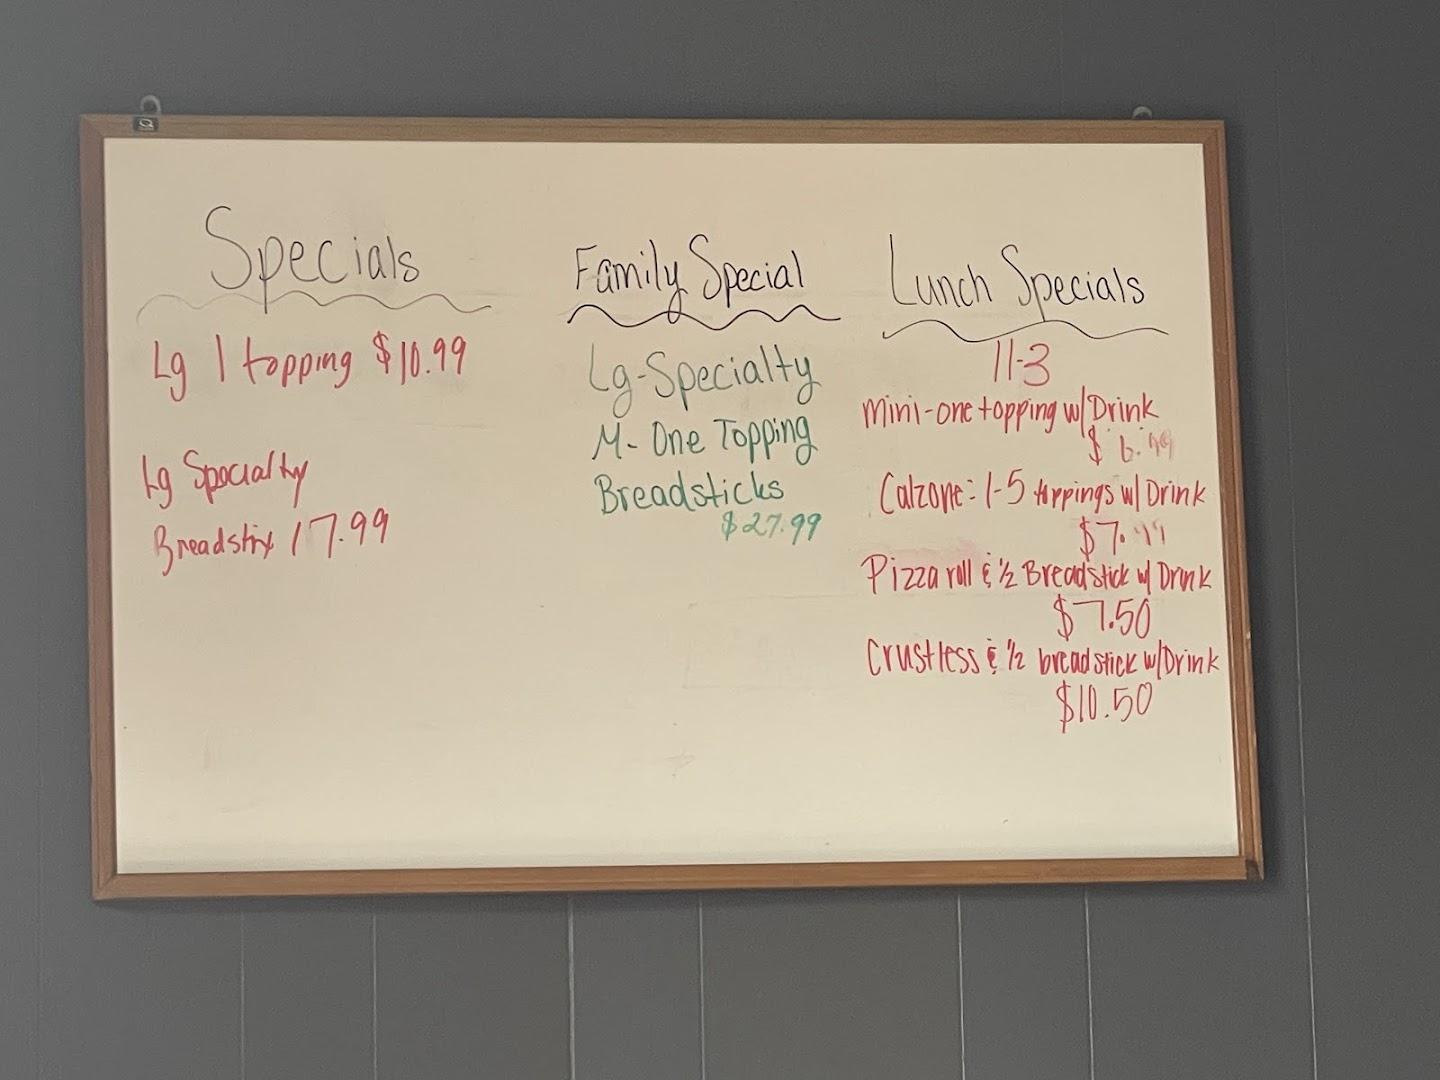 Specials
Lg 1 topping $10.99
Lg Specialty
Breadstix 17.99
Family Special
Lg-Specialty
M- One Topping
Breadsticks
$27.99
Lunch Specials
11-3
mini-one topping w/Drink
$6.99
Calzone: 1-5 toppings w/ Drink
$7.99
Pizza roll & 1/2 Breadstick w/ Drink
$7.50
Crustless & 1/2 breadstick w/Drink
$10.50